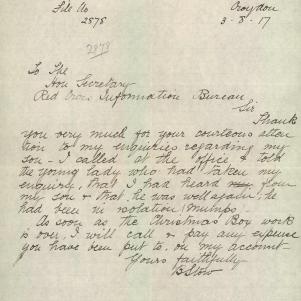 File No Croydon
2878 3-8-17
2878
To The
Hon Secretary
Red Cross Information Bureau
Sir
Thank
you very much for your courteous atten
tion to my enquiries regarding my
son - I called at the office & told
the young lady who had taken my
enquiry, that I had heard from
my son & that he was well again, he
had been in isolation Mumps.
As soon as the Christmas Box work
is over, I will call & pay any expense
you have been put to, on my account
Yours faithfully
B Stow